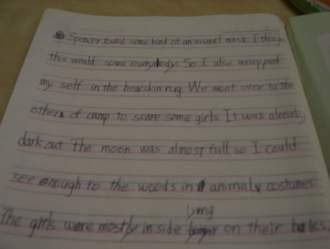 Spencer found some kind of an animal mask I though
this would scare everybody. So I also wrapped
my self in the bearskin rug We went over to the
others of camp to scare some girls It was already
dark out The moon was almost full so I could
see enough to the woods in animal costumes.
lying
The girls were mostly inside on their backs